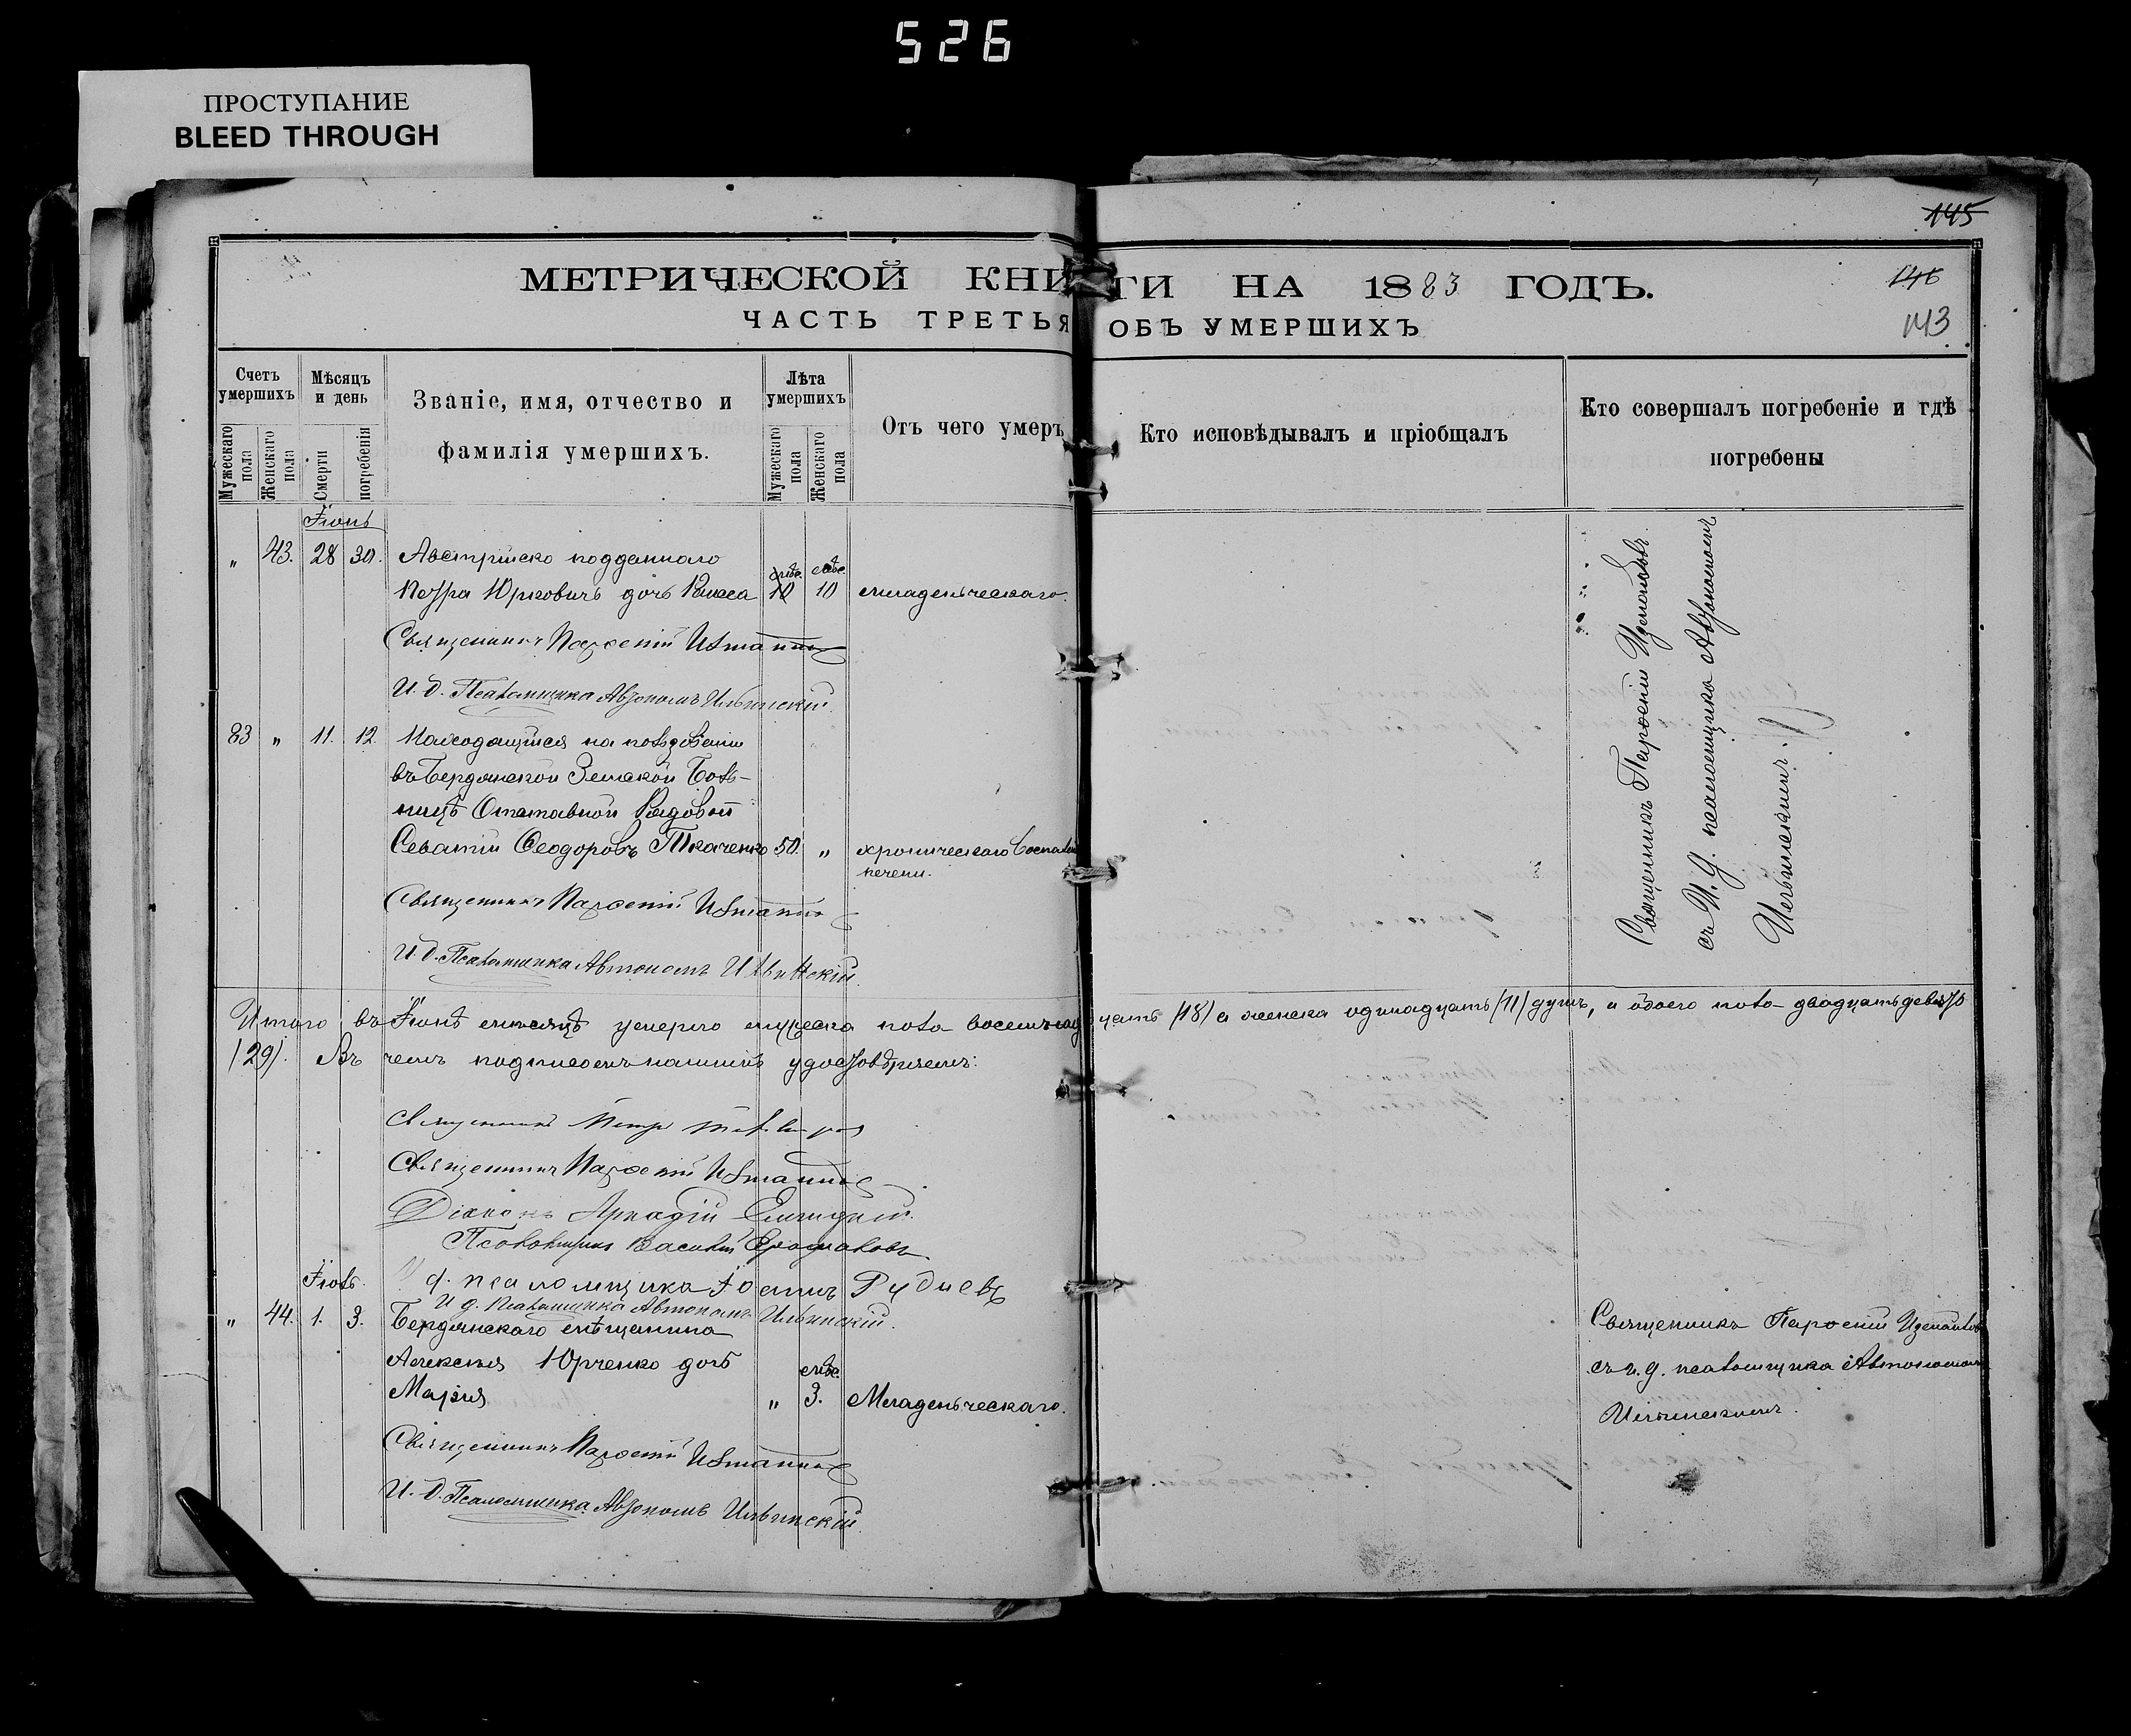 526
ПРОСТУПАНИЕ
BLEED THROUGH
145
МЕТРИЧЕСКОЙ КНИГИ НА 1883 ГОДЪ.
146
ЧАСТЬ ТРЕТЬЯ ОБЪ УМЕРШИХЪ
143
Счетъ умершихъ
Мужескаго пола
Женскаго пола
Мѣсяцъ и день
Смерти
погребенія
Званіе, имя, отчество и
фамилія умершихъ.
Лѣта умершихъ
Мужескаго пола
Женскаго пола
Отъ чего умеръ
Кто исповѣдывалъ и пріобщалъ
Кто совершалъ погребеніе и гдѣ
погребены
Іюнь
" 43. 28 30. Австрійско подданнаго
Петра Юрковичъ дочь 10 10 младенческаго.
Священникъ Парѳеній
И. д. Псаломщика Автономъ Ильинскій.
83 " 11. 12. Находящійся на
въ Бердянской Земской Боль-
ницѣ Отставной Рядовой
Ѳеодоровъ Ткаченко 50. " хроническаго
печени.
Священникъ Парѳеній
И. д. Псаломщика Автономъ Ильинскій.
Священникъ Парѳеній
съ И. д. псаломщика Автономомъ
Ильинскимъ.
Итого въ Іюнѣ мѣсяцѣ умерло мужеска пола восемьнадцать /18/ а женска одинадцать /11/ душъ, а обоего пола двадцать девять
/29/. Въ чемъ подписомъ нашимъ удостовѣряемъ:
Священникъ Петръ
Священникъ Парѳеній
Діаконъ Аркадій
Псаломщикъ Василій
Іюль. псаломщика Руднев
И д. Псаломщика Автономъ Ильинскій.
" 44. 1. 3. Бердянскаго мѣщанина
Алексѣя Юрченко дочь мѣс.
Марія " 3. Младенческаго.
Священникъ Парѳеній
съ и. д. псаломщика Автономомъ
Ильинскимъ.
Священникъ Парѳеній
И. д. Псаломщика Автономъ Ильинскій.